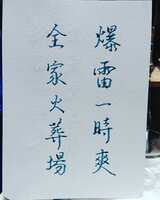 爆雷一時爽
全家火葬場